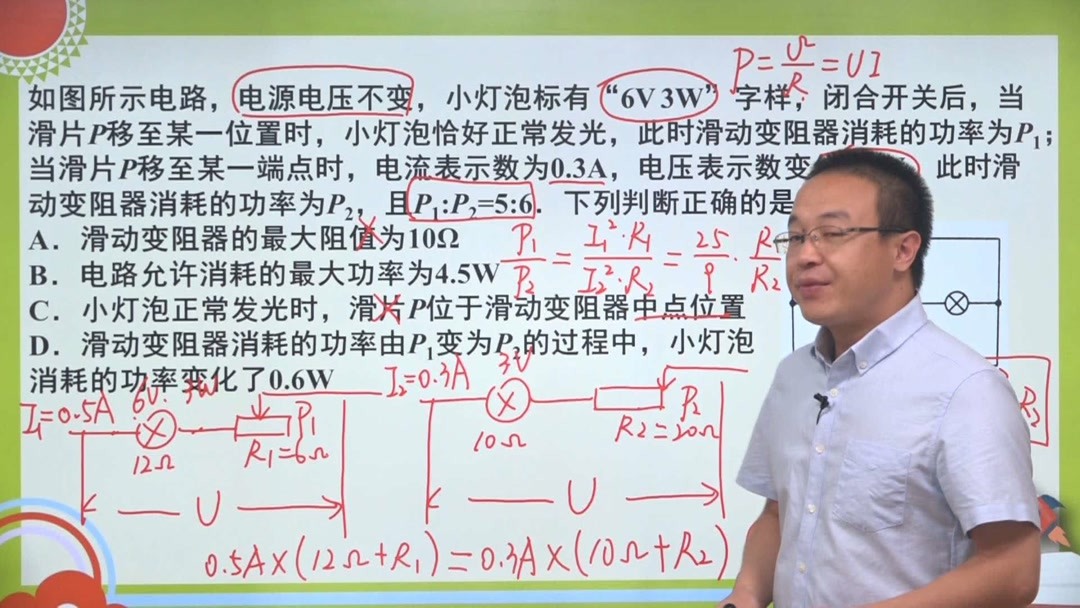 P=U²/R=UI
如图所示电路，电源电压不变，小灯泡标有“6V 3W”字样，闭合开关后，当
滑片P移至某一位置时，小灯泡恰好正常发光，此时滑动变阻器消耗的功率为P₁；
当滑片P移至某一端点时，电流表示数为0.3A，电压表示数变 此时滑
动变阻器消耗的功率为P₂，且P₁:P₂=5:6．下列判断正确的是
A．滑动变阻器的最大阻值为10Ω
B．电路允许消耗的最大功率为4.5W
P₁/P₂=I₁²·R₁/I₂²·R₂=25/9·R₁/R₂
C．小灯泡正常发光时，滑片P位于滑动变阻器中点位置
D．滑动变阻器消耗的功率由P₁变为P₂的过程中，小灯泡
消耗的功率变化了0.6W
I₁=0.5A 6V 3W P₁
12Ω R₁=6Ω
U
I₂=0.3A 3V P₂
10Ω R₂=20Ω
U
R₂
0.5A×(12Ω+R₁)=0.3A×(10Ω+R₂)